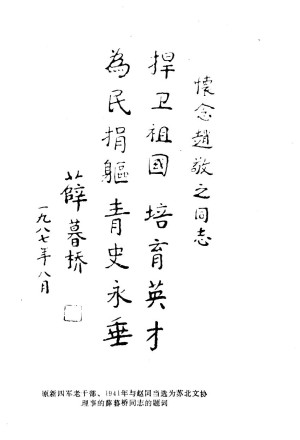 懷念趙敬之同志
捍卫祖國 培育英才
為民捐軀青史永垂
薛暮桥
一九八七年八月
原新四军老干部、1941年与赵同当选为苏北文协
理事的薛暮桥同志的题词